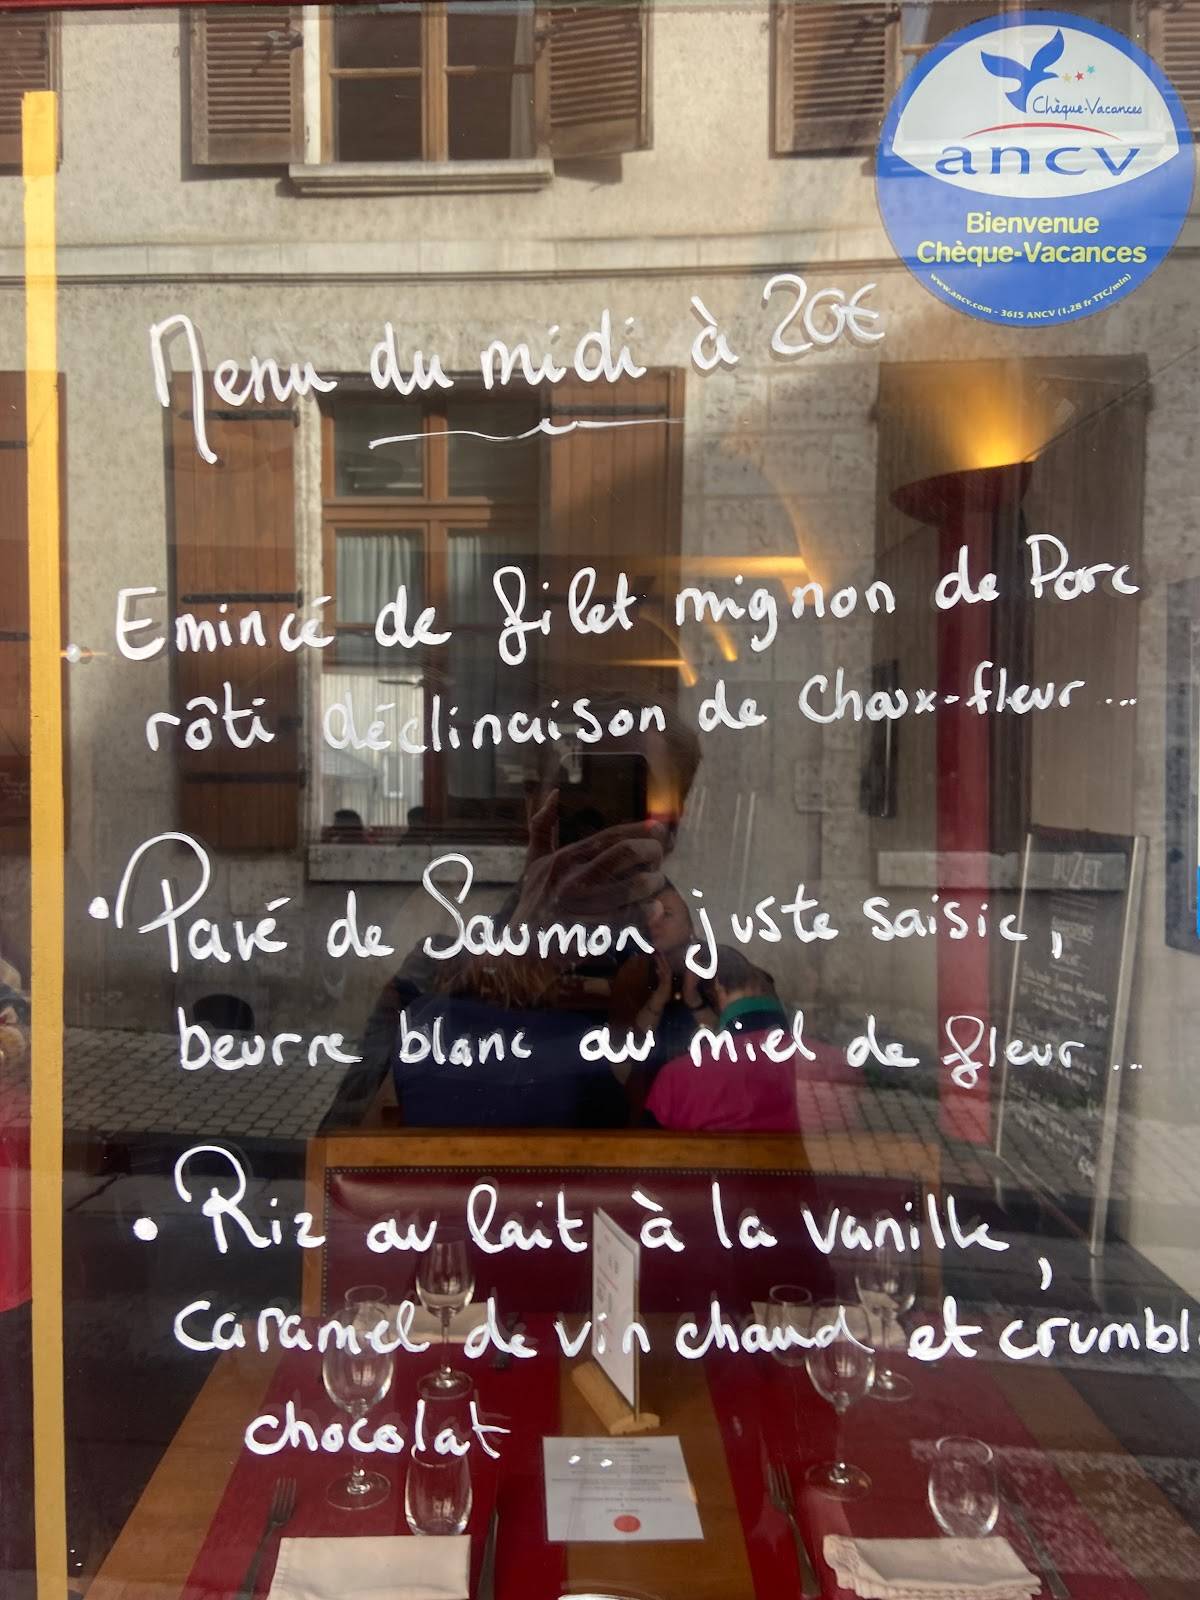 Chèque-Vacances
ancv
Bienvenue
Chèque-Vacances
www.ancv.com - 3615 ANCV (1,28 fr TTC/min)
Menu du midi à 20€
Emincé de filet mignon de Porc
rôti déclinaison de Choux-fleur...
• Pavé de Saumon juste saisie,
beurre blanc au miel de fleur...
• Riz au lait à la vanille,
caramel de vin chaud et crumbl
chocolat ...
BUZET